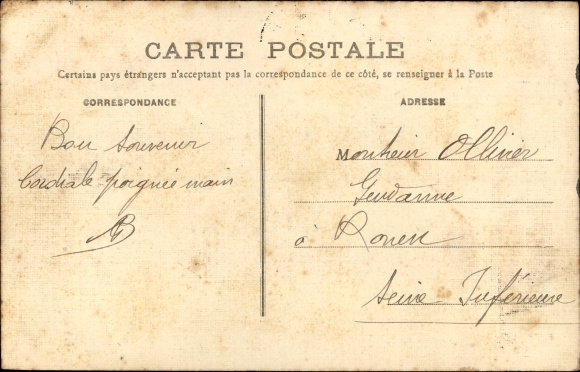 CARTE POSTALE
Certains pays étrangers n'acceptant pas la correspondance de ce côté, se renseigner à la Poste
CORRESPONDANCE
ADRESSE
Bon souvenir
Cordiale poignée main
AB
Monsieur Ollivier
Gendarme
à Rouen
Seine-Inférieure